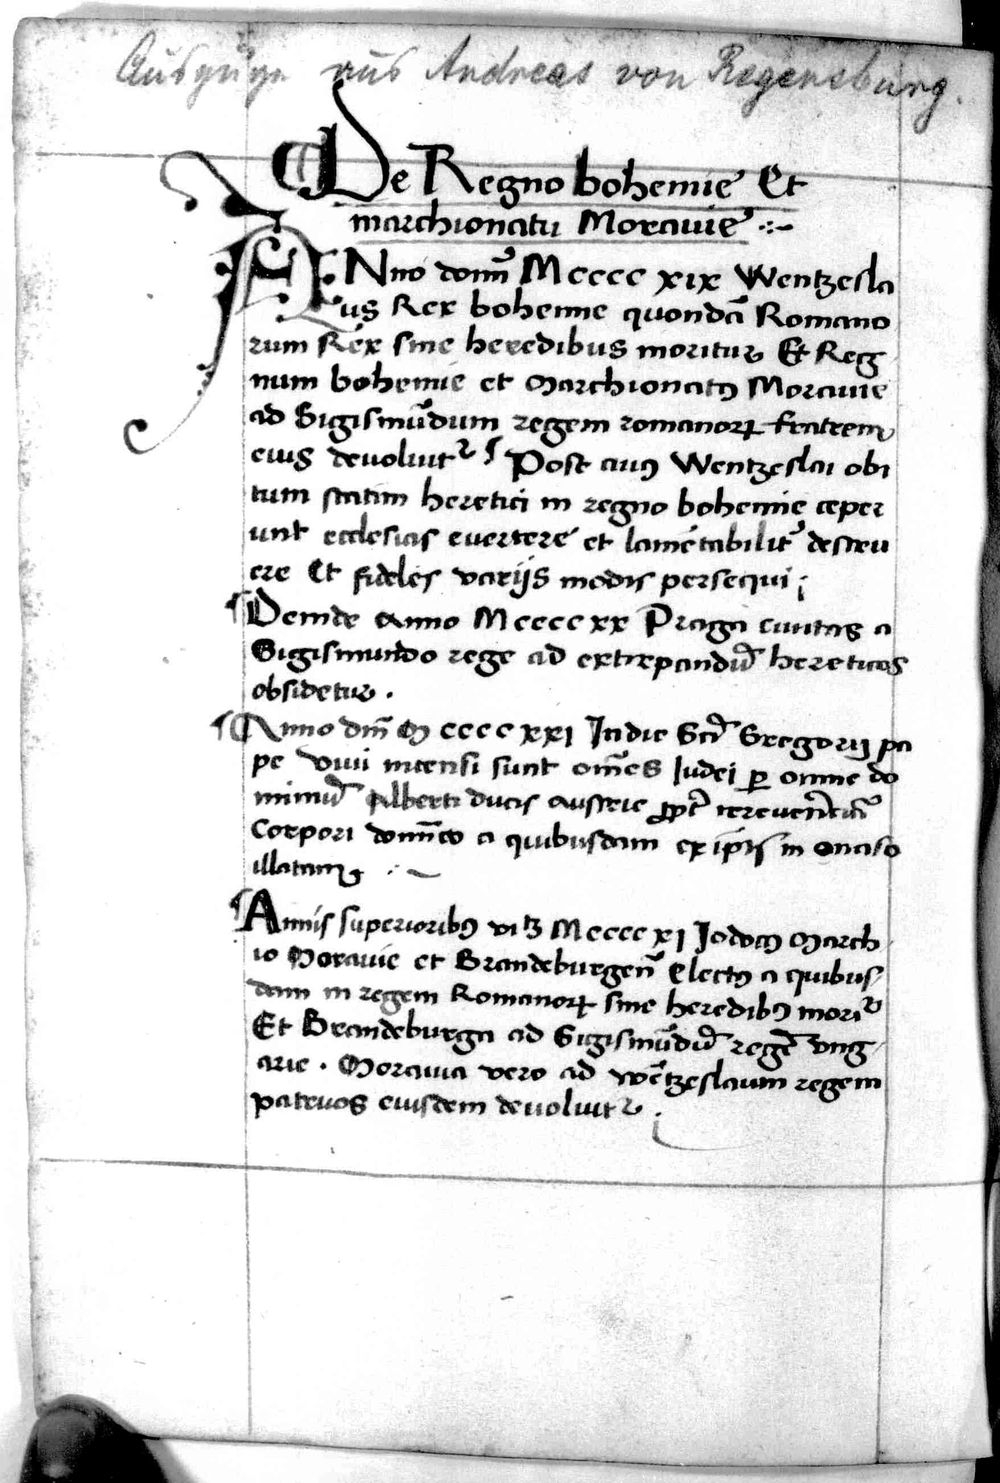 Auszüge aus Andreas von Regensburg.
De Regno bohemie Et
marchionatu Moravie
ANno domī Mcccc xix Wentzesla
us Rex bohemie quondā Romano
rum Rex sine heredibus moritur Et Reg
num bohemie et marchionatꝰ Moravie
ad Sigismūdum regem romanoꝝ fratrem
eius devolvit² ¶ Post cuiꝰ Wentzeslai obi
tum statim heretici in regno bohemie ceper
unt ecclesias evertere et lamētabilit̉ destru
ere Et fideles varijs modis persequi ;
¶ Deinde anno Mcccc xx Praga civitas a
Sigismundo rege ad extirpandū hereticos
obsidetur .
¶ Anno dm̄ M cccc xxj In die Scī Gregorij pa
pe vivi incensi sunt om̄es Judei ꝑ omne do
miniū Alberti ducis austrie ꝓpt̉ irreverētiā
Corpori domīco a quibusdam ex ip̄is in
illatam
¶ Annis superioribꝰ vꝫ Mcccc xj Jodocꝰ March
io Moravie et Brandeburgen̄ Electꝰ a quibus
dam in regem Romanoꝝ sine heredibꝰ mori²
Et Brandeburga ad Sigismūdū regē ung
arie . Moravia vero ad wētzeslaum regem
patruos eiusdem devolvit² .